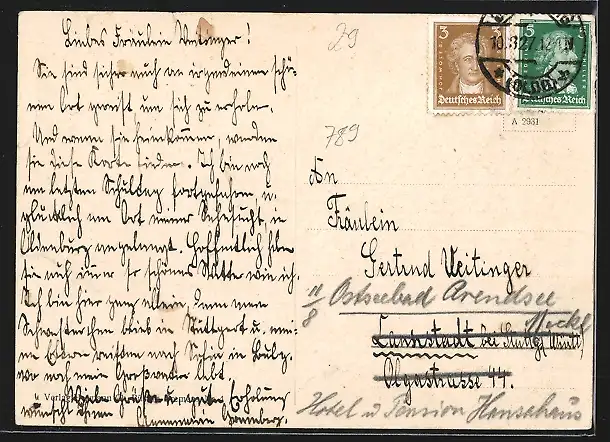 Liebes Fräulein Veitinger!
Sie sind sicher auch an irgendeinen schö-
nen Ort gereist um sich zu erholen.
Und wenn sie heimkommen, werden
sie diese Karte finden. Ich bin noch
am letzten Schultag fortgefahren, u.
glücklich am Ort meiner Sehnsucht, in
Oldenburg angelangt. Hoffentlich haben
sie auch immer so schönes Wetter wie ich.
Ich bin hier ganz allein, denn mein
Schwesterchen blieb in Stuttgart u. mei-
ne Eltern reisten nach
wo noch mein Großvater lebt.
Viele Grüße u. gute Erholung
wünscht Ihnen Annemarie
29
789
3 3
Deutsches Reich
15 5
Deutsches Reich
10.8.27.12-1N
(OLDB)
A 2931
An
Fräulein
Gertrud Veitinger
11/8 Ostseebad Arendsee
Meckl
Cannstatt bei Stuttg. (Württ)
Olgastrasse 44.
Hotel u Pension Hansahaus